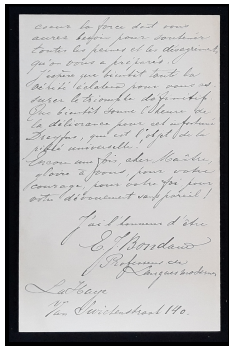 la force dont vous
aurez besoin pour soutenir
toutes les peines et les
qu'on vous a préparés.
J'espère que bientôt toute la
vérité éclatera pour vous
le triomphe définitif
bientôt sonne l'heure de
la délivrance pour cet infortuné
Dreyfus, qui est l'objet de la
pitié universelle!
Encore une fois, cher Maître,
gloire à vous, pour votre
courage, pour votre foi, pour
votre dévouement
J'ai l'honneur d'être
Professeur de
Langues modernes
La Haye
Van Swietenstraat 140.